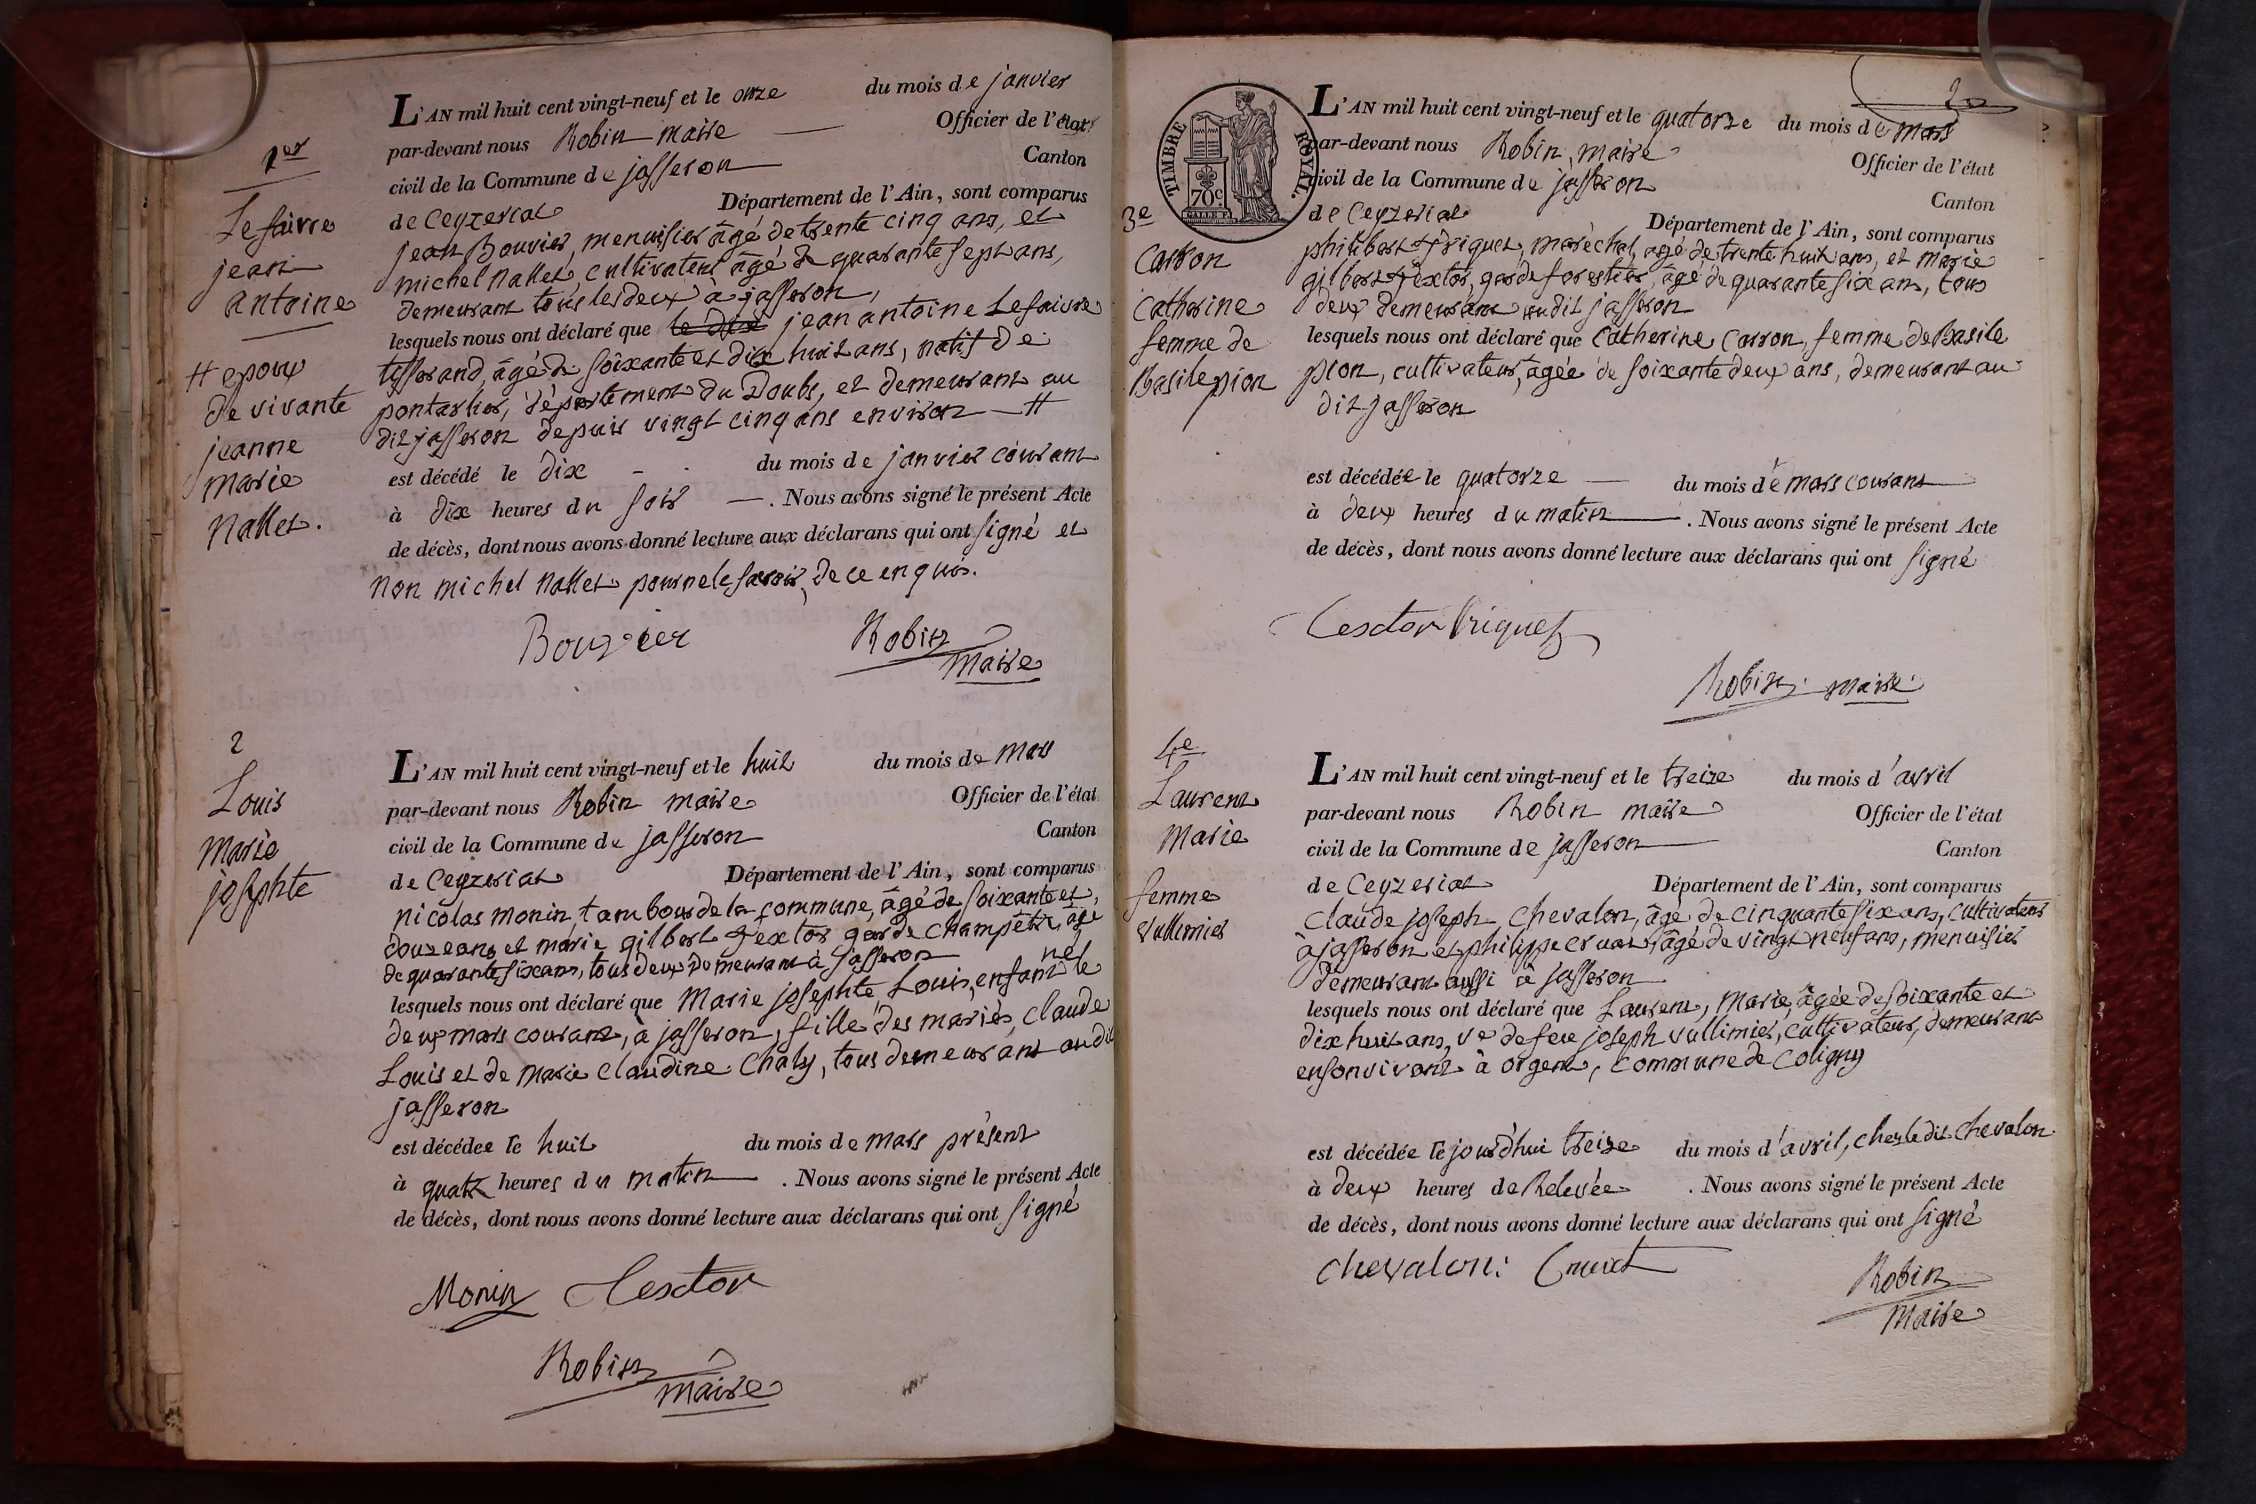 1er
Lefaivre
jean
antoine
# epoux
de vivante
jeanne
marie
nallet.
L'AN mil huit cent vingt-neuf et le onze du mois de janvier
par-devant nous Robin maire Officier de l'état
civil de la Commune de jasseron Canton
de Ceyzeriat Département de l'Ain, sont comparus
jean Bouvier, menuisier âgé de trente cinq ans, et
michel nallet, cultivateur âgé de quarante sept ans,
demeurant tous les deux à jasseron,
lesquels nous ont déclaré que le dix jean antoine Lefaivre
tisserand, âgé de soixante et dix huit ans, natif de
pontarlier, département du Doubs, et demeurant au
dit jasseron depuis vingt cinq ans environ — #
est décédé le dix du mois de janvier courant
à dix heures du soir — . Nous avons signé le présent Acte
de décès, dont nous avons donné lecture aux déclarans qui ont signé et
non michel nallet pour ne le savoir, de ce enquis.
Bouvier Robin
maire
2
Louis
marie
josephte
L'AN mil huit cent vingt-neuf et le huit du mois de mars
par-devant nous Robin maire Officier de l'état
civil de la Commune de jasseron Canton
de Ceyzeriat Département de l'Ain, sont comparus
nicolas monin, tambour de la commune, âgé de soixante et
douze ans et marie gilbert Textor garde champêtre, âgé
de quarante six ans, tous deux demeurant à jasseron
lesquels nous ont déclaré que marie josephte Louis, enfant né le
deux mars courant, à jasseron, fille des mariés, claude
Louis et de marie claudine Chaly, tous demeurant audit
jasseron
est décédée le huit du mois de mars présent
à quatre heures du matin — . Nous avons signé le présent Acte
de décès, dont nous avons donné lecture aux déclarans qui ont signé
Monin Textor
Robin
maire
20
TIMBRE ROYAL
70c
3e
Carron
Catherine
femme de
Basile pion
L'AN mil huit cent vingt-neuf et le quatorze du mois de mars
par-devant nous Robin, maire Officier de l'état
civil de la Commune de jasseron Canton
de Ceyzeriat Département de l'Ain, sont comparus
philibert friquet, maréchal, agé de trente huit ans, et marie
gilbert Textor, garde forestier, âgé de quarante six ans, tous
deux demeurant audit jasseron
lesquels nous ont déclaré que Catherine Carron, femme de Basile
pion, cultivateur, âgée de soixante deux ans, demeurant au
dit jasseron
est décédée le quatorze — du mois de mars courant
à deux heures du matin — . Nous avons signé le présent Acte
de décès, dont nous avons donné lecture aux déclarans qui ont signé
Textor friquet
Robin maire
4e
Laurent
Marie
femme
Vullimier
L'AN mil huit cent vingt-neuf et le treize du mois d'avril
par-devant nous Robin maire Officier de l'état
civil de la Commune de jasseron Canton
de Ceyzeriat Département de l'Ain, sont comparus
claude joseph chevalon, âgé de cinquante six ans, cultivateur
à jasseron et philippe cruat, âgé de vingt neuf ans, menuisier
demeurant aussi à jasseron
lesquels nous ont déclaré que Laurent, Marie, âgée de soixante et
dix huit ans, ve de feu joseph vullimier, cultivateur, demeurant
en son vivant à orgent, commune de coligny
est décédée le jourd'hui treize du mois d'avril, chez le dit chevalon
à deux heures de Relevée . Nous avons signé le présent Acte
de décès, dont nous avons donné lecture aux déclarans qui ont signé
chevalon: Cruat
Robin
maire